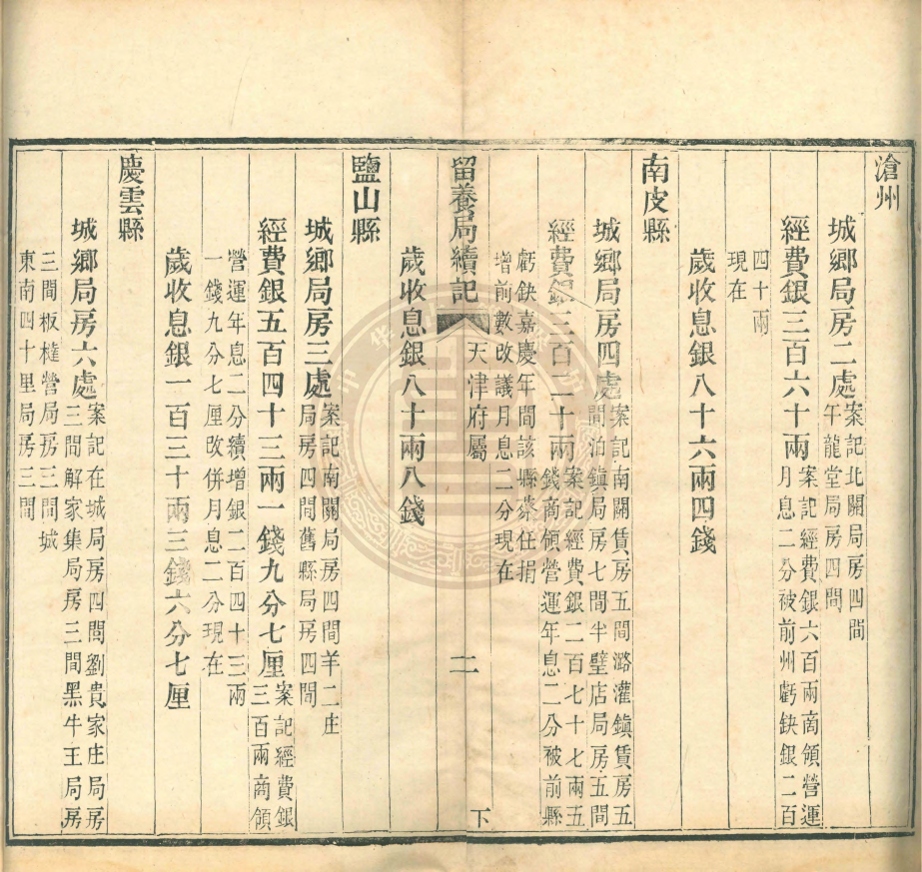 滄州
城鄉局房二處案記北關局房四間
午龍堂局房四間
經費銀三百六十兩案記經費銀六百兩商領營運
月息二分被前州虧缺銀二百
四十兩
現在
歲收息銀八十六兩四錢
南皮縣
城鄉局房四處案記南關賃房五間潞灌鎮賃房五
間泊鎮局房七間半壁店局房五間
經費銀三百二十兩案記經費銀二百七十七兩五
錢商領營運年息二分被前縣
虧缺嘉慶年間該縣蔡任捐
增前數改議月息二分現在
留養局續記
天津府屬
二
下
歲收息銀八十兩八錢
鹽山縣
城鄉局房三處案記南關局房四間羊二庄
局房四間舊縣局房四間
經費銀五百四十三兩一錢九分七厘案記經費銀
三百兩商領
營運年息二分續增銀二百四十三兩
一錢九分七厘改併月息二分現在
歲收息銀一百三十兩三錢六分七厘
慶雲縣
城鄉局房六處案記在城局房四間劉貴家庄局房
三間解家集局房三間黑牛王局房
三間板橽營局房三間城
東南四十里局房三間